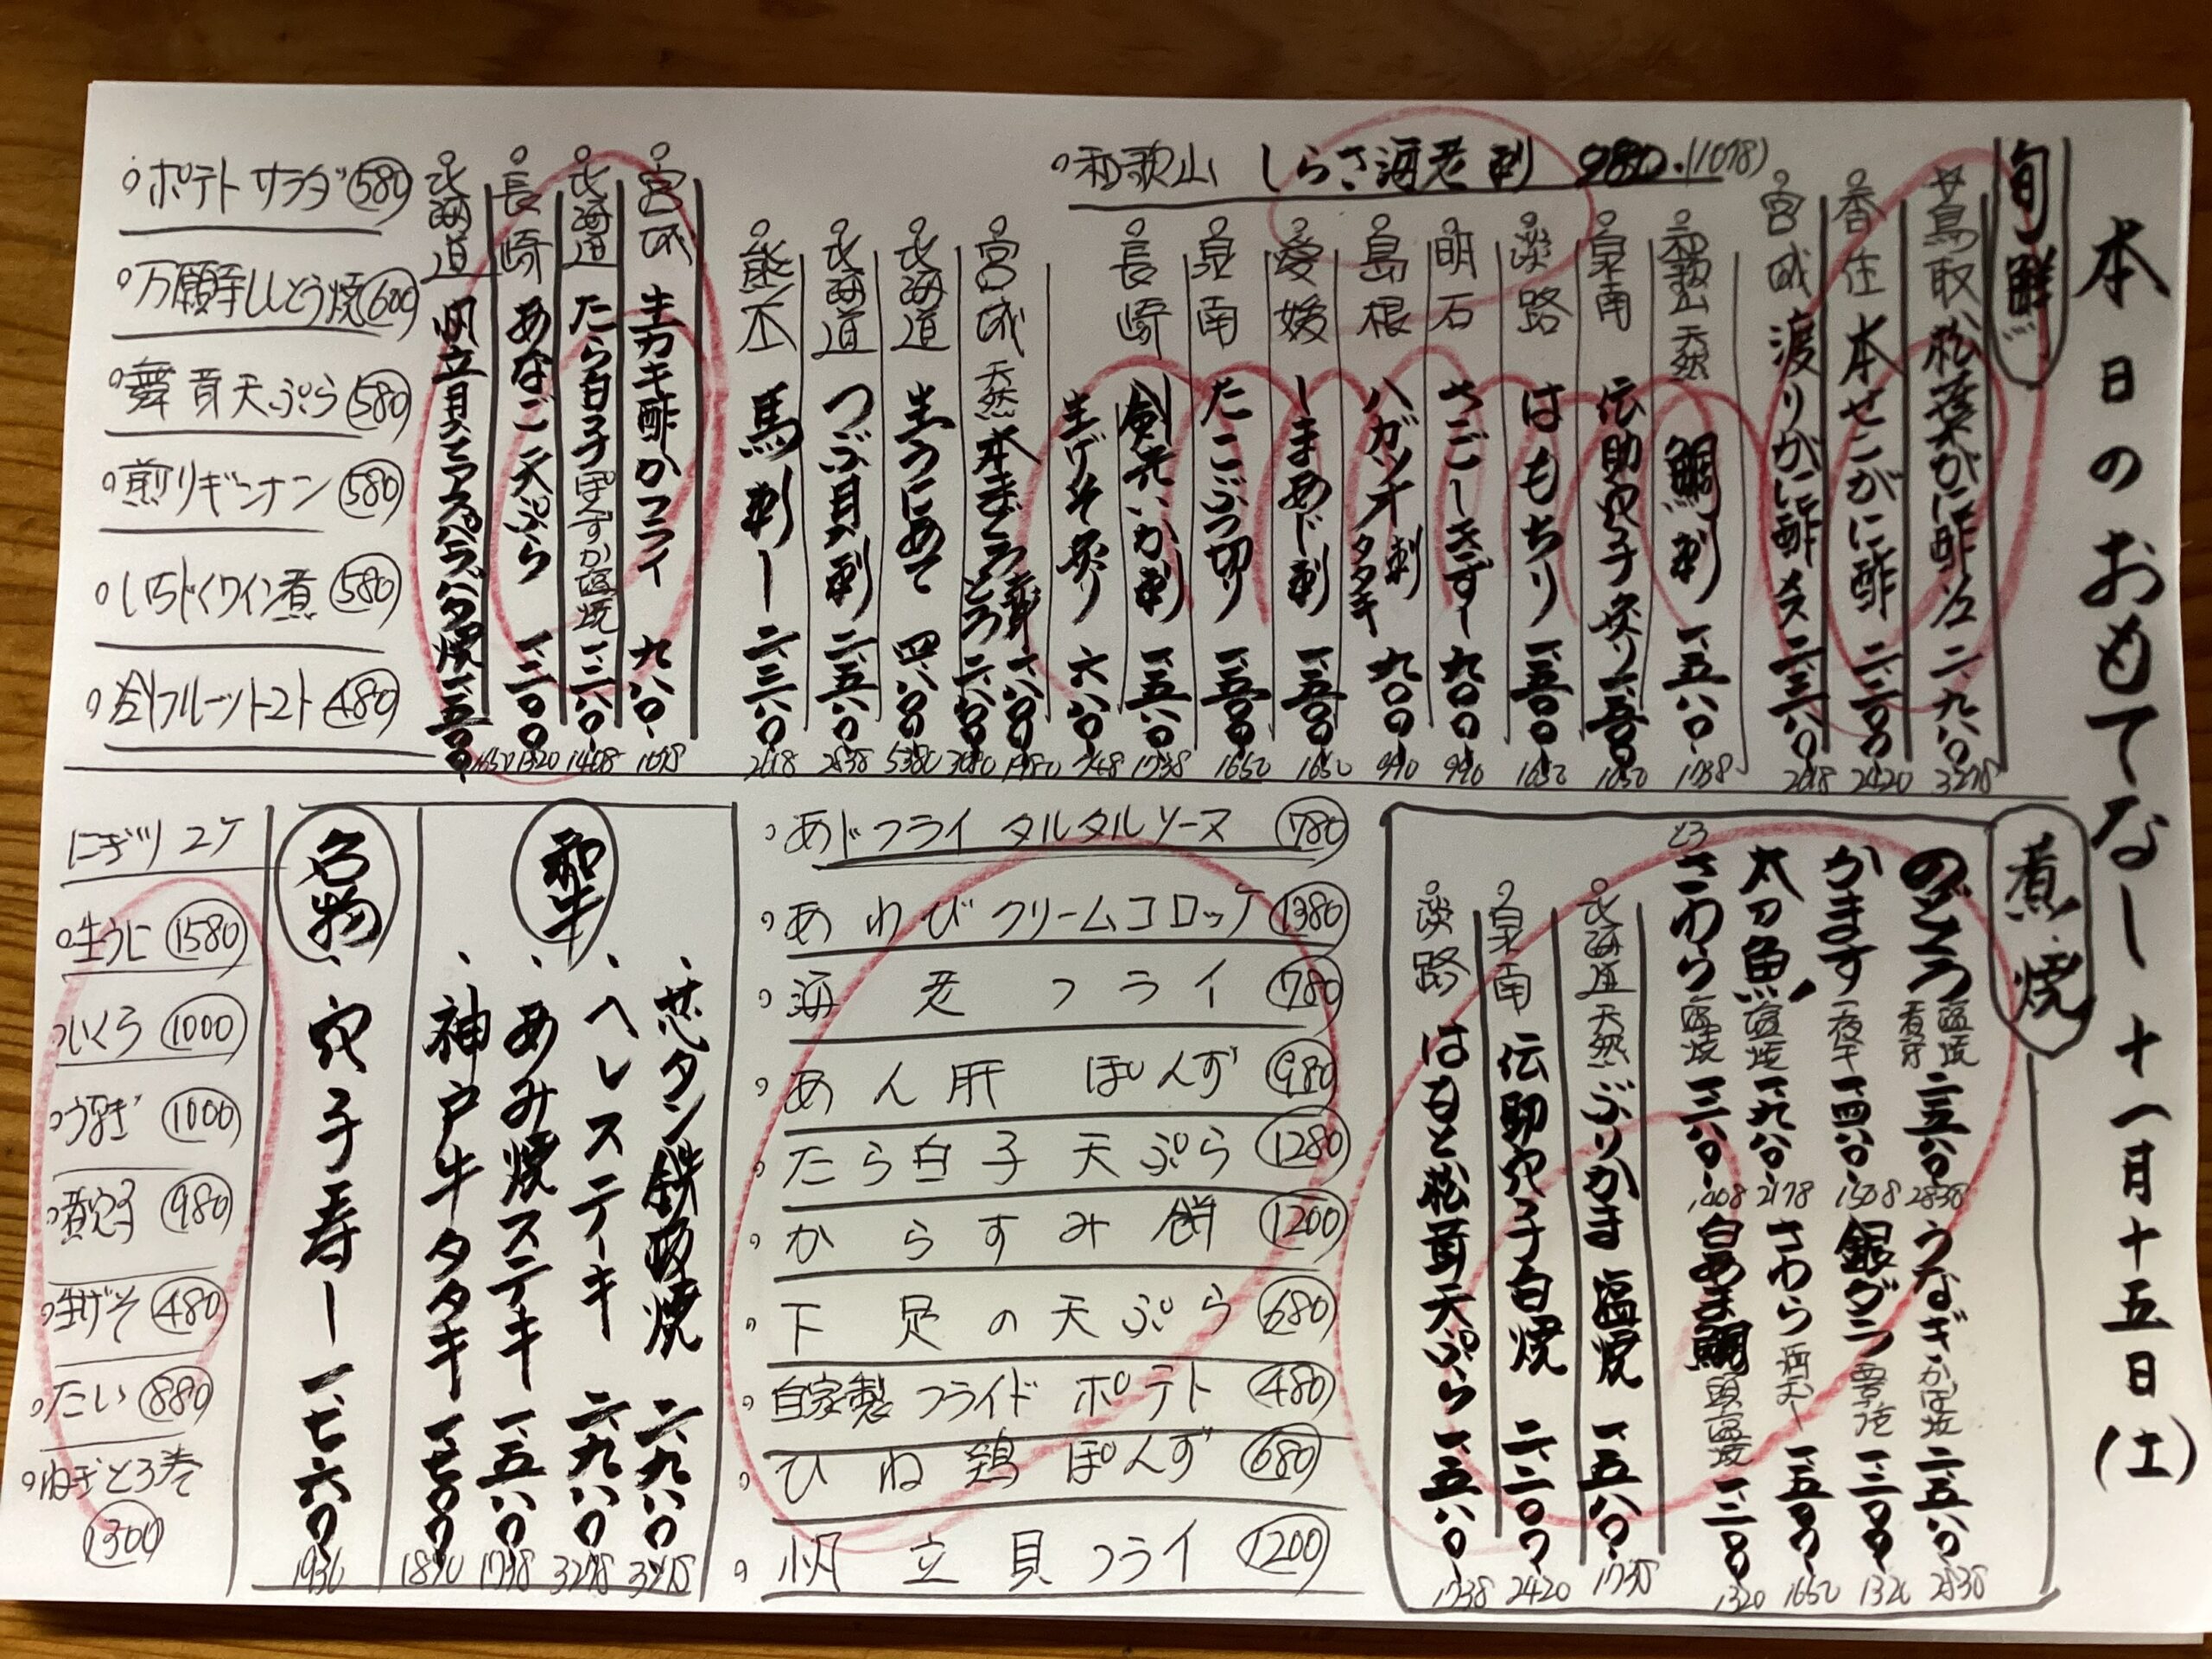 本日のおもてなし 十一月十五日(土)
旬鮮
鳥取 松葉がに酢 二、九八〇 3278
香住 本せこがに酢 二、二〇〇 2420
宮城 渡りがに酢 メス 二、三八〇 2618
和歌山 しらさ海老刺 980.(1078)
和歌山 天然 鯛刺 一、五八〇 1738
泉南 伝助穴子炙り 一、五〇〇 1650
淡路 はもちり 一、五〇〇 1650
明石 さごしきずし 九〇〇 990
島根 ハガツオ刺 タタキ 九〇〇 990
愛媛 しまあじ刺 一、五〇〇 1650
泉南 たこぶつ切り 一、五〇〇 1650
長崎 剣先いか刺 一、五八〇 1738
生げそ炙り 六八〇 748
宮城 天然 本まぐろ 赤身 一、八〇〇 1980
とろ 二、八〇〇 3080
北海道 生うにあて 四、八〇〇 5280
北海道 つぶ貝刺 二、五八〇 2838
熊本 馬刺し 二、三八〇 2618
宮城 生カキ酢かフライ 九八〇 1078
北海道 たら白子 ぽんずか塩焼 一、二八〇 1408
長崎 あなご天ぷら 一、二〇〇 1320
北海道 帆立貝アスパラバタ焼 一、五〇〇 1650
ポテトサラダ 580
万願寺ししとう焼 600
舞茸天ぷら 580
煎りギンナン 580
いちじくワイン煮 580
冷しフルーツトマト 480
煮・焼
のどぐろ 塩焼 煮付 二、五八〇 2838
かます 一夜干 一、四八〇
太刀魚 塩焼 一、九八〇 2178
とろ さわら 塩焼 一、二八〇 1408
うなぎ かば焼 二、五八〇 2838
銀ダラ 一、二〇〇 1320
さわら 酒むし 一、五〇〇 1650
白あま鯛 頭塩焼 一、二〇〇 1320
北海道 天然 ぶりかま塩焼 一、五八〇 1738
泉南 伝助穴子白焼 二、二〇〇 2420
淡路 はもと松茸天ぷら 一、五八〇 1738
あじフライ タルタルソース 780
あわびクリームコロッケ 1380
海老フライ 780
あん肝 ぽんず 980
たら白子天ぷら 1280
からすみ餅 1200
下足の天ぷら 680
自家製フライドポテト 480
ひね鶏ぽんず 680
帆立貝フライ 1200
和牛
芯タン鉄板焼 二、九八〇 3278
ヘレステーキ 二、九八〇 3278
あみ焼ステーキ 一、五八〇 1738
神戸牛タタキ 一、七〇〇 1870
名物
穴子寿し 一、七六〇 1936
にぎり 2ケ
生うに 1580
いくら 1000
うなぎ 1000
煮穴子 980
生げそ 480
たい 880
ねぎとろ巻 1300